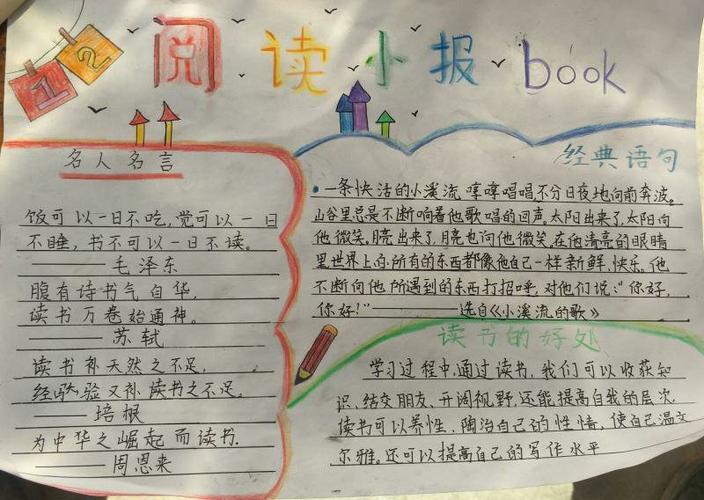 1 2
阅读小报 book
名人名言
饭可以一日不吃,觉可以一日
不睡,书不可以一日不读。
——毛泽东
腹有诗书气自华,
读书万卷始通神。
——苏轼
读书补天然之不足,
经验又补读书之不足。
——培根
为中华之崛起而读书.
——周恩来
经典语句
一条快活的小溪流,哼哼唱唱,不分日夜地向前奔波。
山谷里总是不断响着他歌唱的回声。太阳出来了,太阳向
他微笑。月亮出来了,月亮也向他微笑。在他清亮的眼睛
里世界上的所有的东西都像他自己一样新鲜、快乐。他
不断向他所遇到的东西打招呼,对他们说:“你好,
你好!”——选自《小溪流的歌》
读书的好处
学习过程中,通过读书,我们可以收获知
识、结交朋友、开阔视野,还能提高自我的层次
读书可以养性,陶冶自己的性情,使自己温文
尔雅。还可以提高自己的写作水平